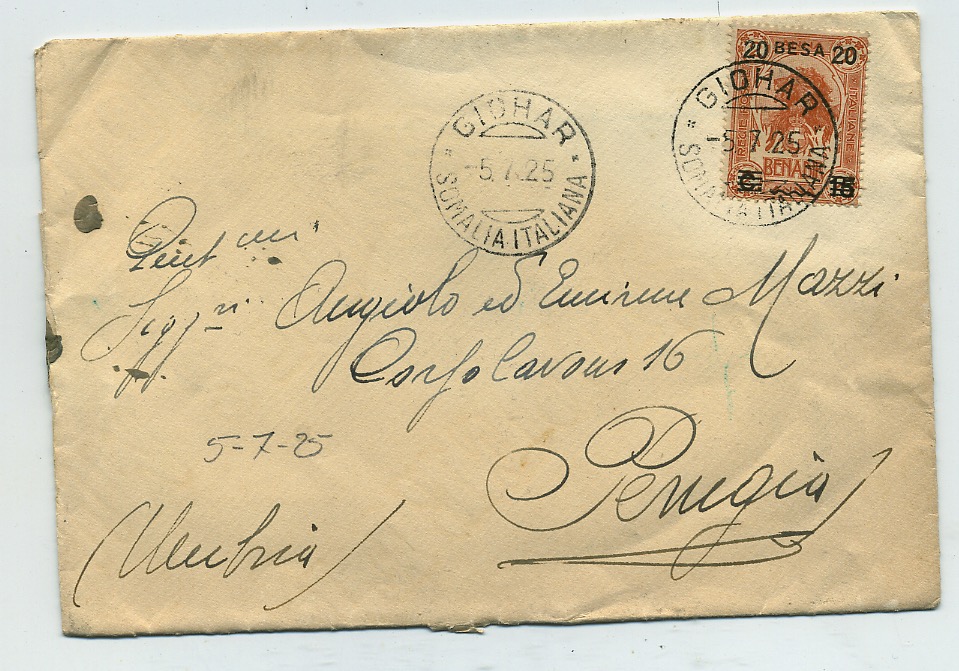 20 BESA 20
POSTE ITALIANE
BENADIR
15
GIOHAR
-5.7.25
SOMALIA ITALIANA
GIOHAR
-5.7.25
SOMALIA ITALIANA
Gent mi
Sigg ri Angiolo ed Emirene Mazzi
Corso Cavour 16
Perugia
5-7-25
(Umbria)